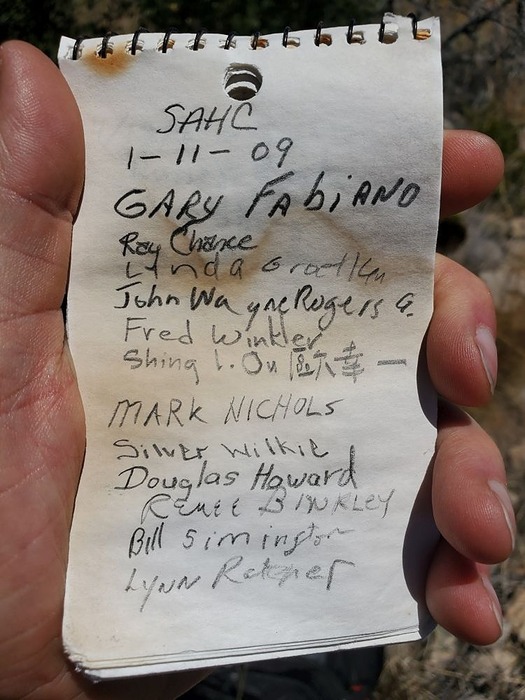 SAHC
1-11-09
GARY FAbiANO
Ray Chance
Linda
John Wayne Rogers
Fred Winkler
Shing I. Ou 歐幸一
MARK NICHOLS
Silver Wilkie
Douglas Howard
RENEE BINKLEY
Bill Simington
LYNN